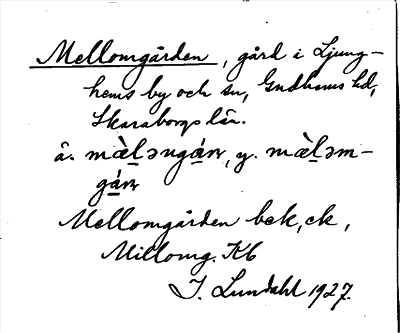 Mellomgården, gård i Ljung-
hems by och sn, Gudhems hd,
Skaraborgs län.
ä. mὰl̠əngá̠ṇ, y. mὰl̠əm-
gá̠ṇ
Mellomgården bek, ck,
Millomg. Kb
I. Lundahl 1927.